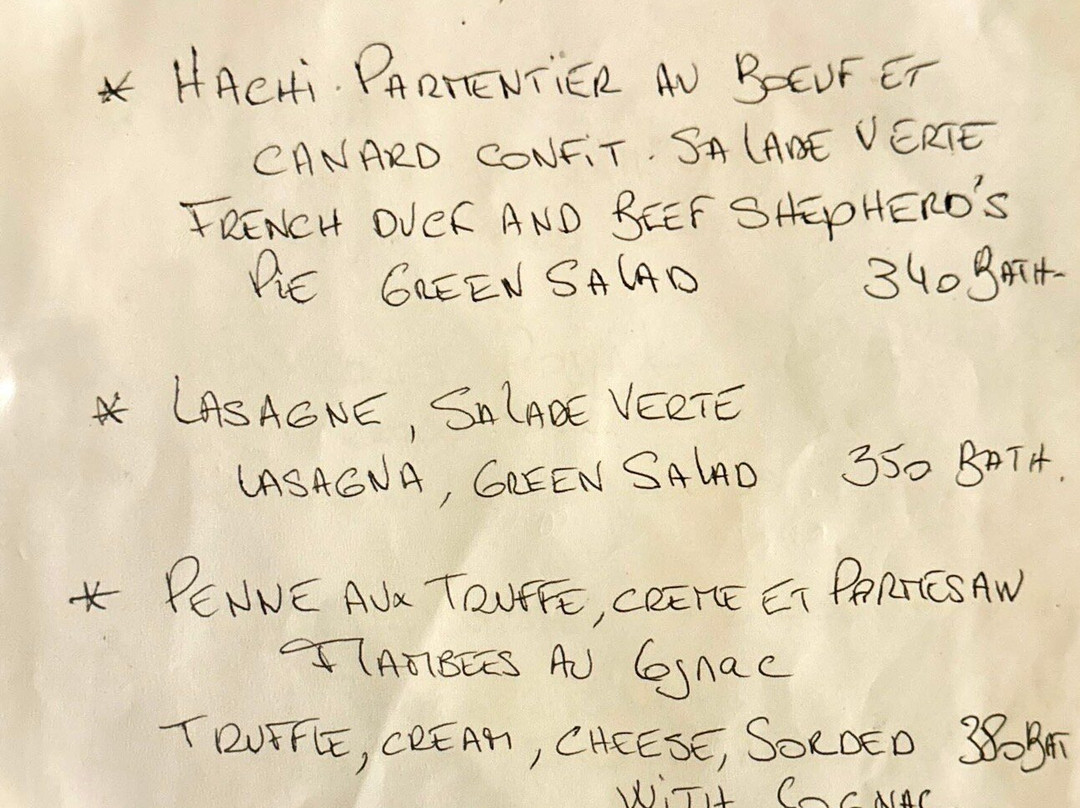 * HACHi. PARMENTïER AU BOEUF ET
CANARD CONFiT. SALADE VERTE
FRENCH DUCK AND BEEF SHEPHERD'S
PiE GREEN SALAD 340 BATH-
* LASAGNE, SALADE VERTE
LASAGNA, GREEN SALAD 350 BATH.
* PENNE AUX TRUFFE, CREME ET PARMESAN
FLAMBEES AU Cognac
TRUFFLE, CREAM, CHEESE, SORDED 380 BAT
WiTH COGNAC